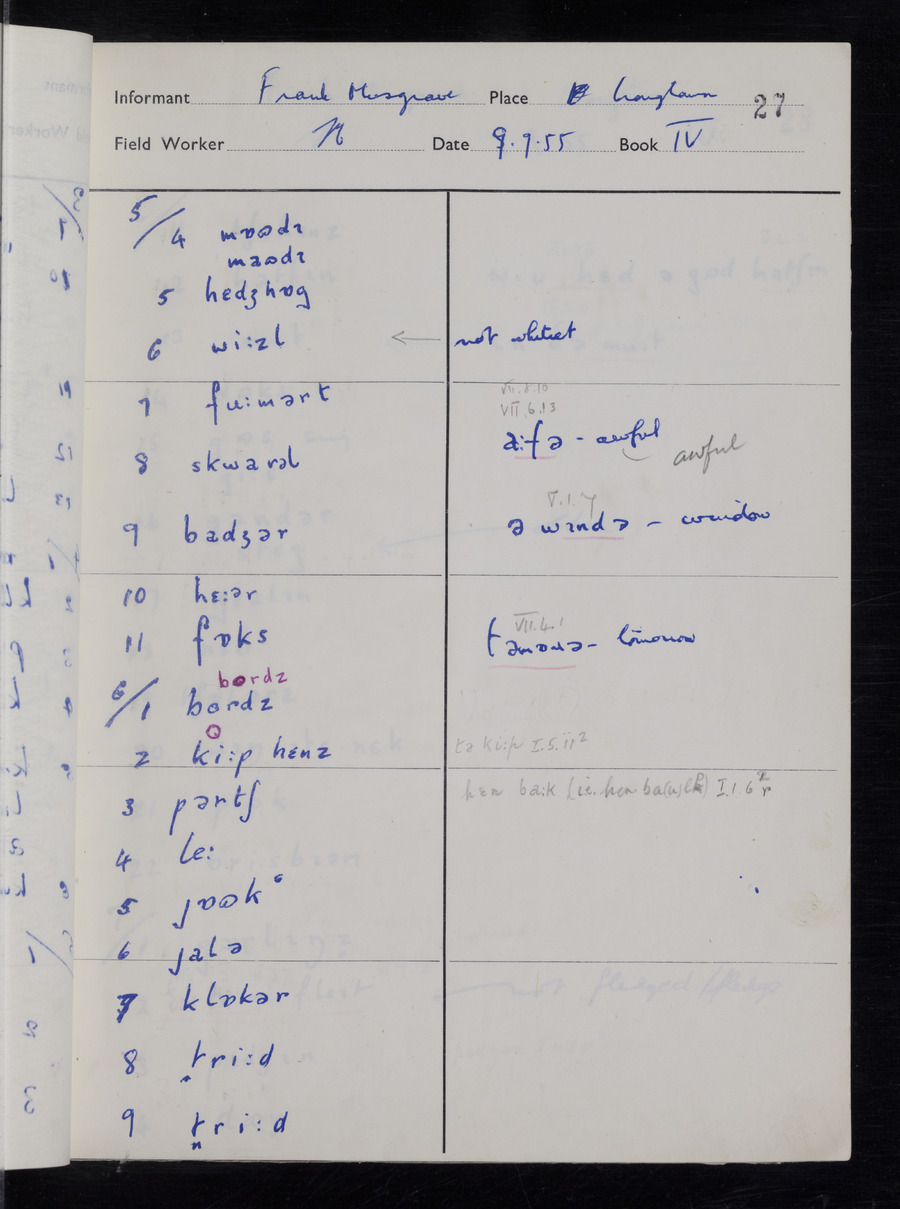 Informant Frank Musgrave Place Longtown 27
Field Worker N Date 9.9.55 Book IV
5/4 mɒʊdɪ
maʊdɪ
5 hedʒhɒg
6 wi:zl ← not whitret
7 fu:mərt
VII.8.10
VII.6.13
8 skwarəl a:fə - awful awful
V.1.7
9 badʒər ə wɪndə - window
10 hɛ:ər
11 fɒks
VII.4.1
təmɒrə - tomorrow
bɵrdz
6/1 bɵrdz
2 ki:p hɛnz tə ki:p I.5.ii²
3 pərtʃ hɛn ba:k (i.e. hen ba(u)lk) I.1 6
4 le:
5 jɒʊk
6 jalə
7 klɒkər
8 tri:d
9 tri:d